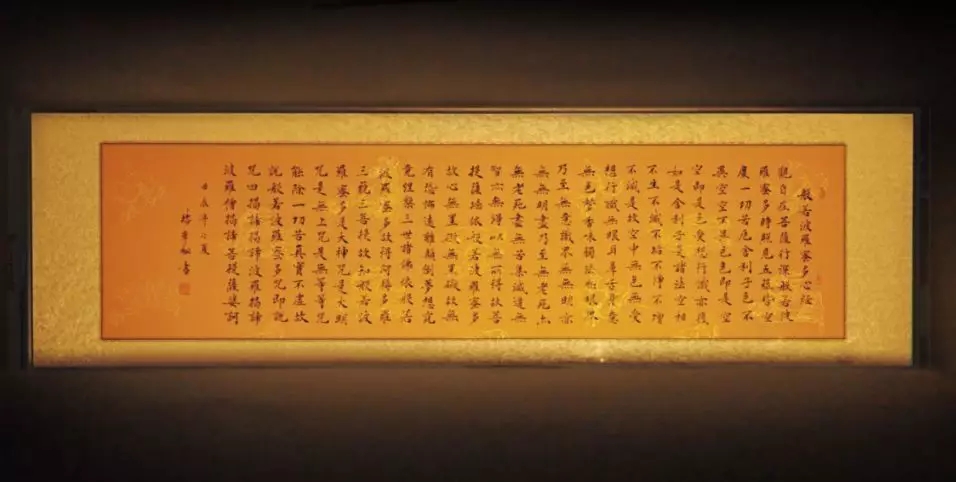 般若波羅蜜多心經
觀自在菩薩行深般若波
羅蜜多時照見五蘊皆空
度一切苦厄舍利子色不
異空空不異色色即是空
空即是色受想行識亦復
如是舍利子是諸法空相
不生不滅不垢不淨不增
不減是故空中無色無受
想行識無眼耳鼻舌身意
無色聲香味觸法無眼界
乃至無意識界無無明亦
無無明盡乃至無老死亦
無老死盡無苦集滅道無
智亦無得以無所得故菩
提薩埵依般若波羅蜜多
故心無罣礙無罣礙故無
有恐怖遠離顛倒夢想究
竟涅槃三世諸佛依般若
波羅蜜多故得阿耨多羅
三藐三菩提故知般若波
羅蜜多是大神咒是大明
咒是無上咒是無等等咒
能除一切苦真實不虛故
說般若波羅蜜多咒即說
咒曰揭諦揭諦波羅揭諦
波羅僧揭諦菩提薩婆訶
年之夏
書